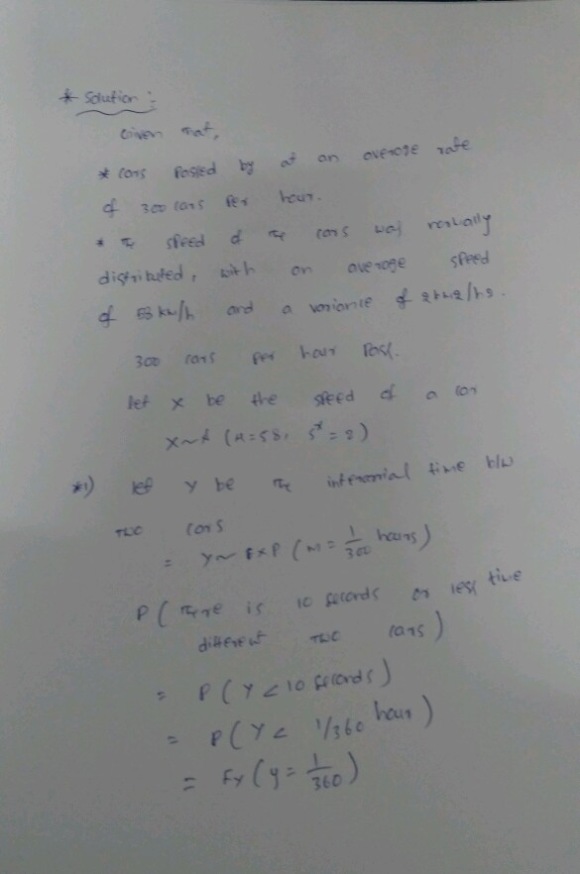 * Solution :
Given that,
* Cars Passed by at an average rate
of 300 cars Per hour.
* The speed of the cars was normally
distributed, with an average speed
of 58 km/h and a variance of
300 cars Per hour Pass.
let X be the speed of a car
X~N (μ=58, =2)
*1) let Y be The interarrival time b/w
TWO Cars
= Y~ EXP (M = 1/300 hours)
P( There is 10 seconds or less time
different TWO Cars)
= P(Y < 10 seconds)
= P(Y < 1/360 hour)
= Fy (y = 1/360)